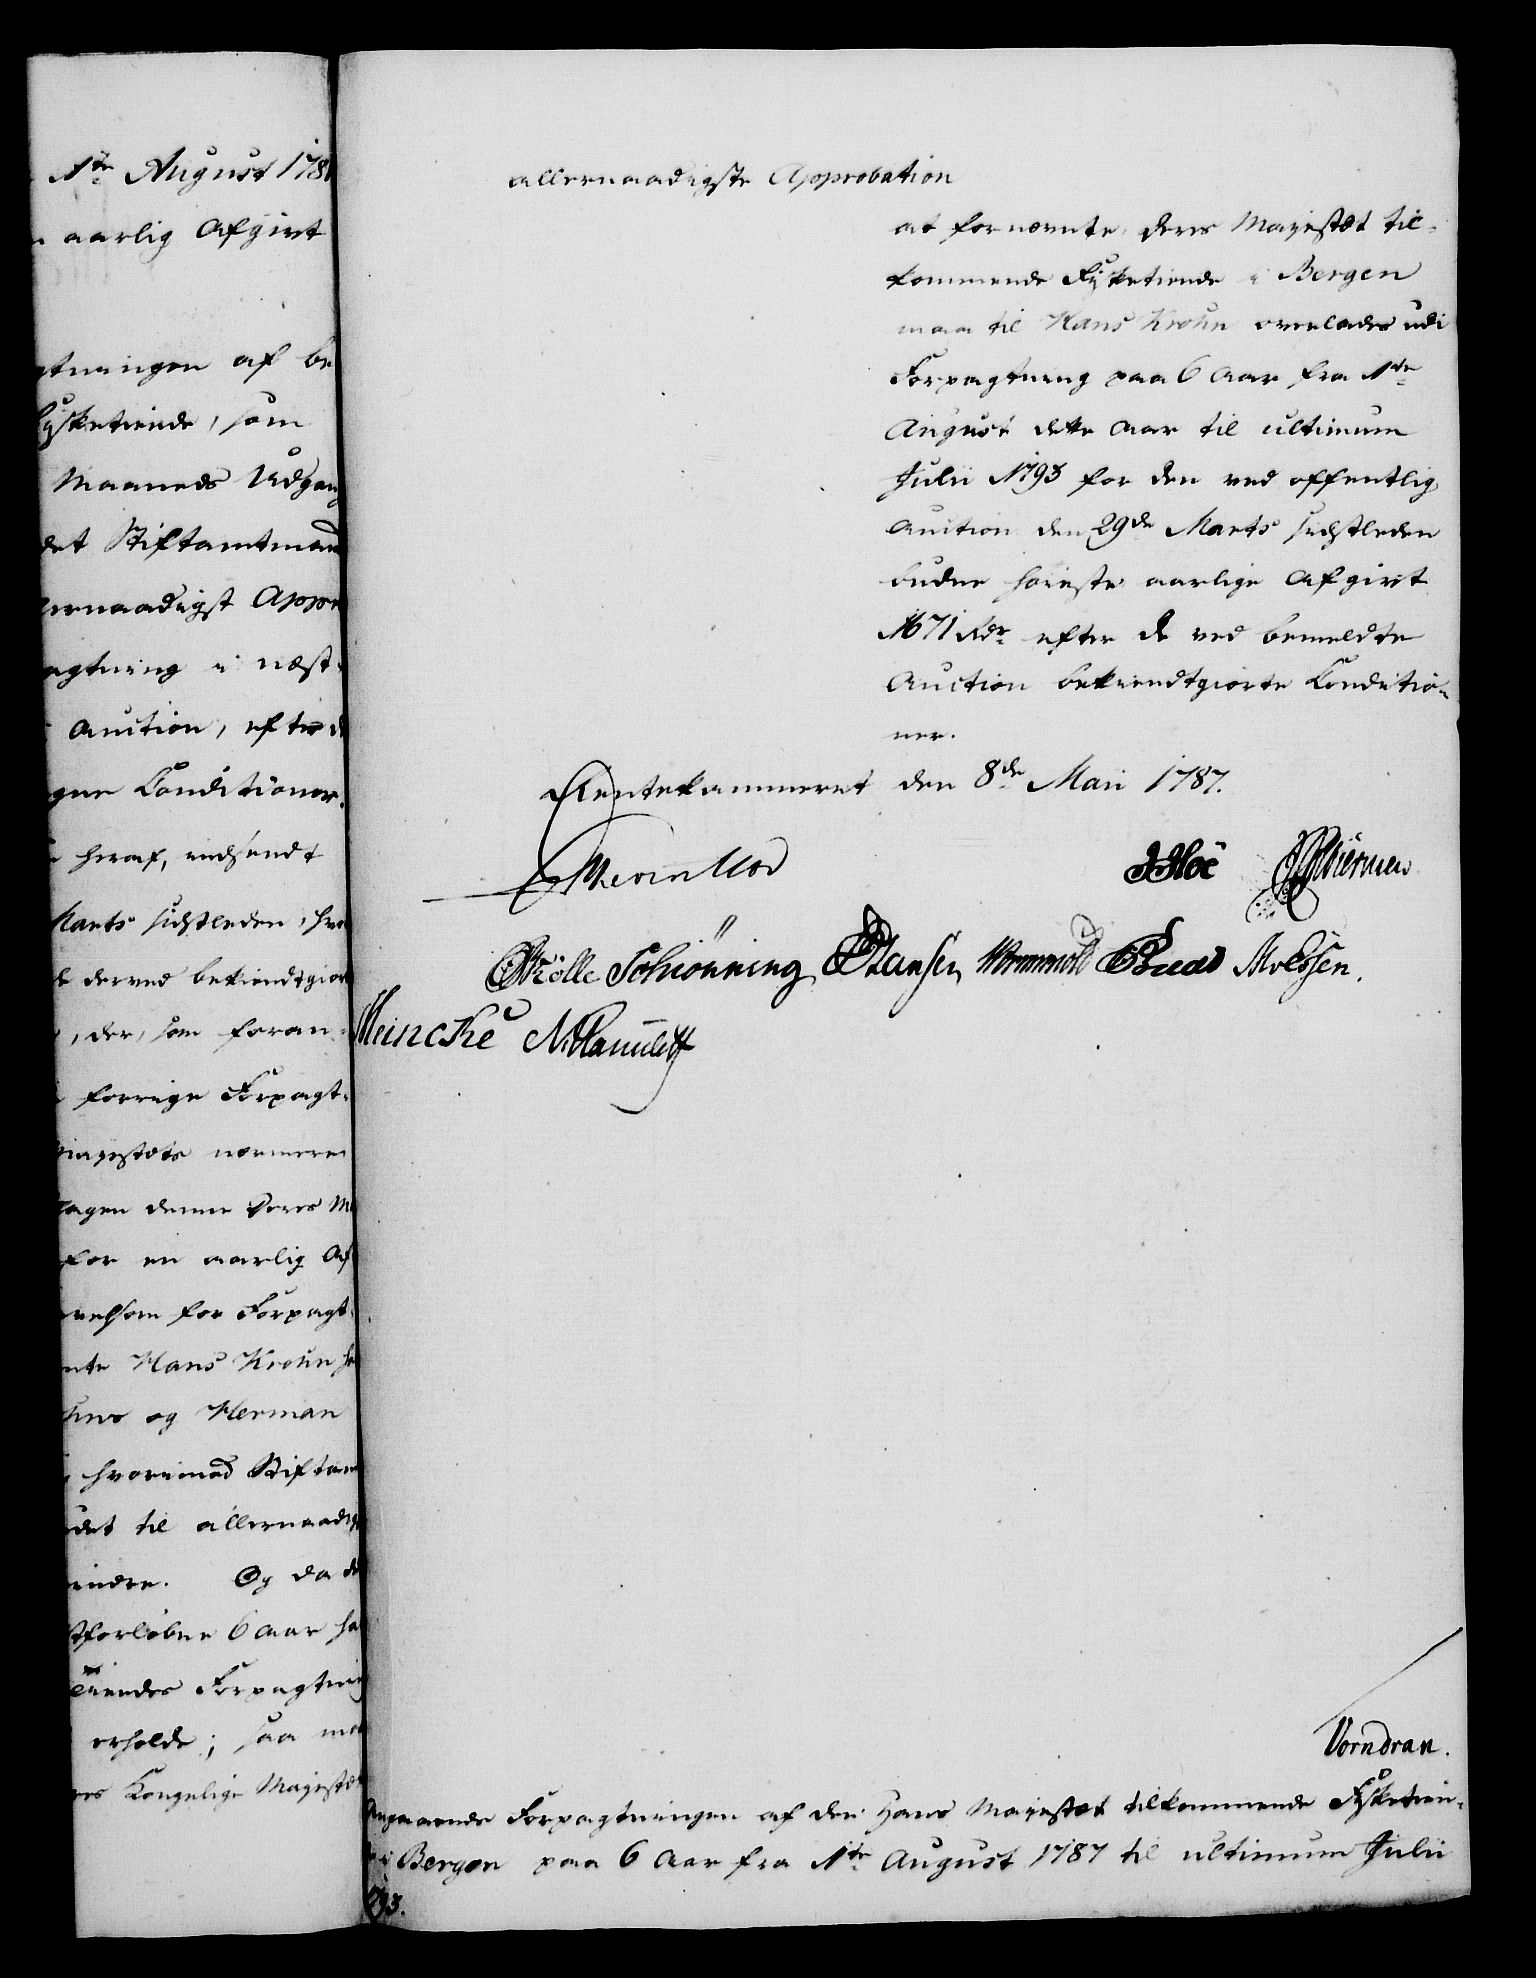 1te August 178
aarlig Afgivt
af be
Fiisketiende, som
Maaneds Udgang
det Stiftamtmand
allernaadigst Appr
i næst
Auction, efter d
Conditioner.
heraf, indsendt
Marts sidstleden, hvo
derved bekiendtgior
, der, som foran-
forrige Forpagt-
Majestæts nærmere
denne Deres M
for en aarlig Af
velsom for Forpagt-
Hans Krohn
og Herman
hvorimod Stiftam
det til allernaadig
mindre. Og da d
6 Aar ha
Tiendes Forpagtning
erholde; saa
Kongelige Majestæt
allernaadigste Approbation
at fornævnte, Deres Majestæt til-
kommende Fiisketiende i Bergen
maa til Hans Krohn overlades udi
Forpagtning paa 6 Aar fra 1te
August dette Aar til ultimum
Julii 1793 for den ved offentlig
Auction den 29de Marts sidstleden
budne høieste aarlige Afgivt
1671 Rdr efter de ved bemeldte
Auction bekiendtgiorte Conditio-
ner.
Rentekammeret den 8de Maii 1787.
Schiönning Hansen Wormwold
Meincke
Vorndran.
Angaaende Forpagtningen af den Hans Majestæt tilkommende Fiisketien-
de i Bergen paa 6 Aar fra 1te August 1787 til ultimum Julii
1793.